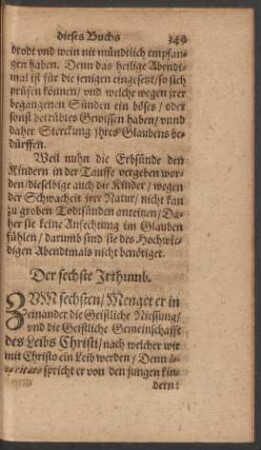 dieses Buchs 349
brodt vnd wein nit mündtlich empfan-
gen haben. Denn das heilige Abendt-
mal ist für die jenigen eingesetzt/ so sich
prüfen können/ vnd welche wegen jrer
begangenen Sünden ein böses/ oder
sonst betrübtes Gewissen haben/ vnnd
daher Sterckung jhres Glaubens be-
dürffen.
Weil nuhn die Erbsünde den
Kindern in der Tauffe vergeben wor-
den/ dieselbige auch die Kinder/ wegen
der Schwacheit jrer Natur/ nicht kan
zu groben Todtsünden anreitzen/ Da-
her sie keine Anfechtung im Glauben
fühlen/ darumb sind sie des Hochwir-
digen Abendtmals nicht benötiget.
Der sechste Jrthumb.
ZVM sechsten/ Menget er in
einander die Geistliche Niessung/
vnd die Geistliche Gemeinschafft
des Leibs Christi/ nach welcher wir
mit Christo ein Leib werden/ Denn
spricht er von den jungen kin-
dern: